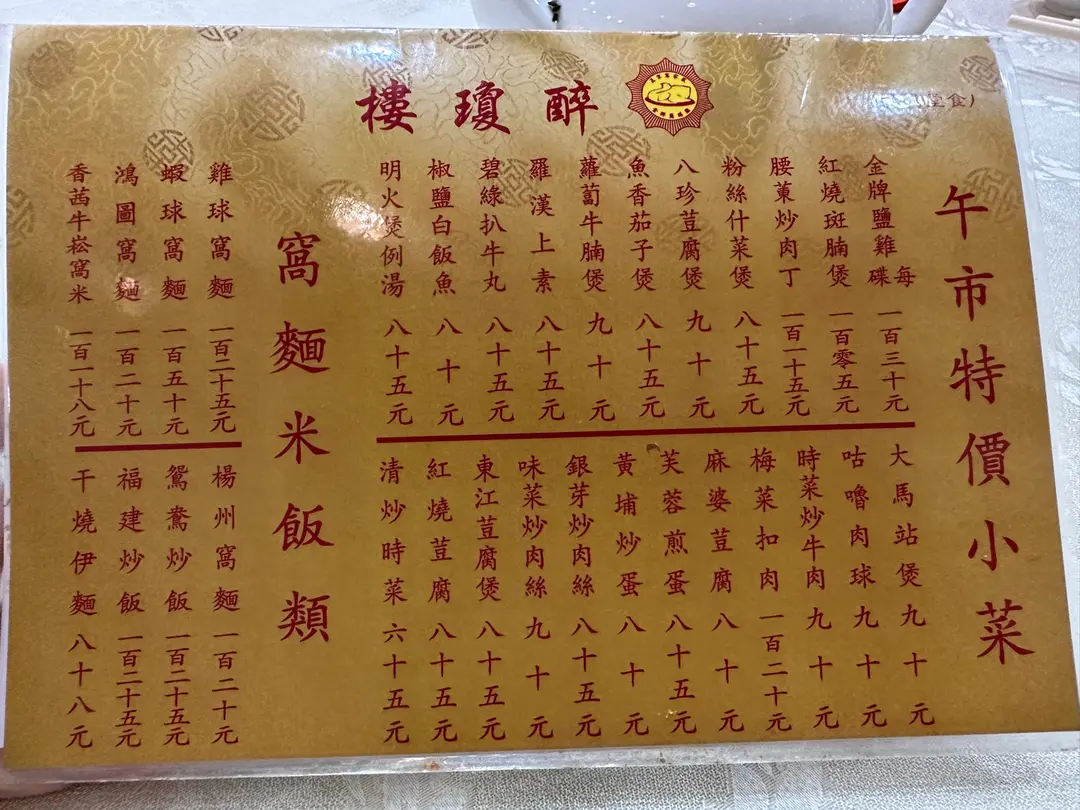 醉瓊樓
堂食）
午市特價小菜
金牌鹽雞每碟 一百三十元
紅燒斑腩煲 一百零五元
腰菓炒肉丁 一百一十五元
粉絲什菜煲 八十五元
八珍荳腐煲 九十元
魚香茄子煲 八十五元
蘿蔔牛腩煲 九十元
羅漢上素 八十五元
碧綠扒牛丸 八十五元
椒鹽白飯魚 八十元
明火煲例湯 八十五元
大馬站煲 九十元
咕嚕肉球 九十元
時菜炒牛肉 九十元
梅菜扣肉 一百二十元
麻婆荳腐 八十元
芙蓉煎蛋 八十五元
黃埔炒蛋 八十元
銀芽炒肉絲 八十五元
味菜炒肉絲 九十元
東江荳腐煲 八十五元
紅燒荳腐 八十五元
清炒時菜 六十五元
窩麵米飯類
雞球窩麵 一百二十五元
蝦球窩麵 一百五十元
鴻圖窩麵 一百二十元
香茜牛崧窩米 一百一十八元
楊州窩麵 一百二十元
鴛鴦炒飯 一百二十五元
福建炒飯 一百二十五元
干燒伊麵 八十八元